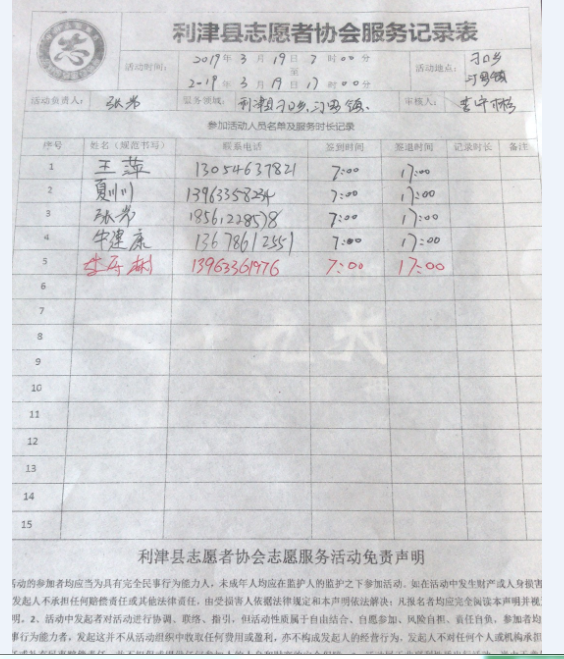 利津县志愿者协会服务记录表
活动时间： 2019年3月19日7时00分
至
2019年3月19日17时00分
活动地点： 刁口乡
汀罗镇
活动负责人： 张岩 服务领域： 利津刁口乡、汀罗镇、 审核人：
参加活动人员名单及服务时长记录
序号 姓名（规范书写） 联系电话 签到时间 签退时间 记录时长 备注
1 王萍 13054637821 7:00 17:00
2 夏川川 13963358234 7:00 17:00
3 张岩 18561228578 7:00 17:00
4 牛建康 13678612551 7:00 17:00
5 13963361976 7:00 17:00
6
7
8
9
10
11
12
13
14
15
利津县志愿者协会志愿服务活动免责声明
活动的参加者均应当为具有完全民事行为能力人，未成年人均应在监护人的监护之下参加活动。如在活动中发生财产或人身损害
发起人不承担任何赔偿责任或其他法律责任，由受损害人依据法律规定和本声明依法解决；凡报名者均应完全阅读本声明并视
明。2、活动中发起者对活动进行协调、联络、指引，但活动性质属于自由结合、自愿参加、风险自担、责任自负，参加者均
事行为能力者，发起这并不从活动组织中收取任何费用或盈利，亦不构成发起人的经营行为，发起人不对任何个人或机构承担